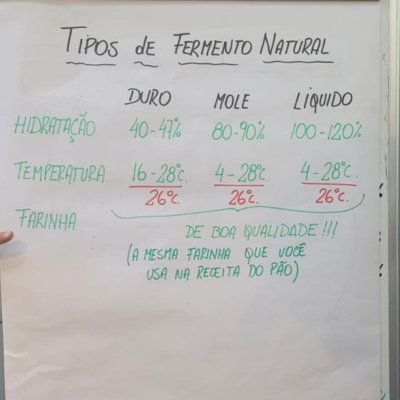 TIPOS de FERMENTO NATURAL
DURO MOLE LÍQUIDO
HIDRATAÇÃO 40-47% 80-90% 100-120%
TEMPERATURA 16-28°C. 4-28°C. 4-28°C.
26°C. 26°C. 26°C.
FARINHA DE BOA QUALIDADE!!!
(A MESMA FARINHA QUE VOCÊ
USA NA RECEITA DO PÃO)